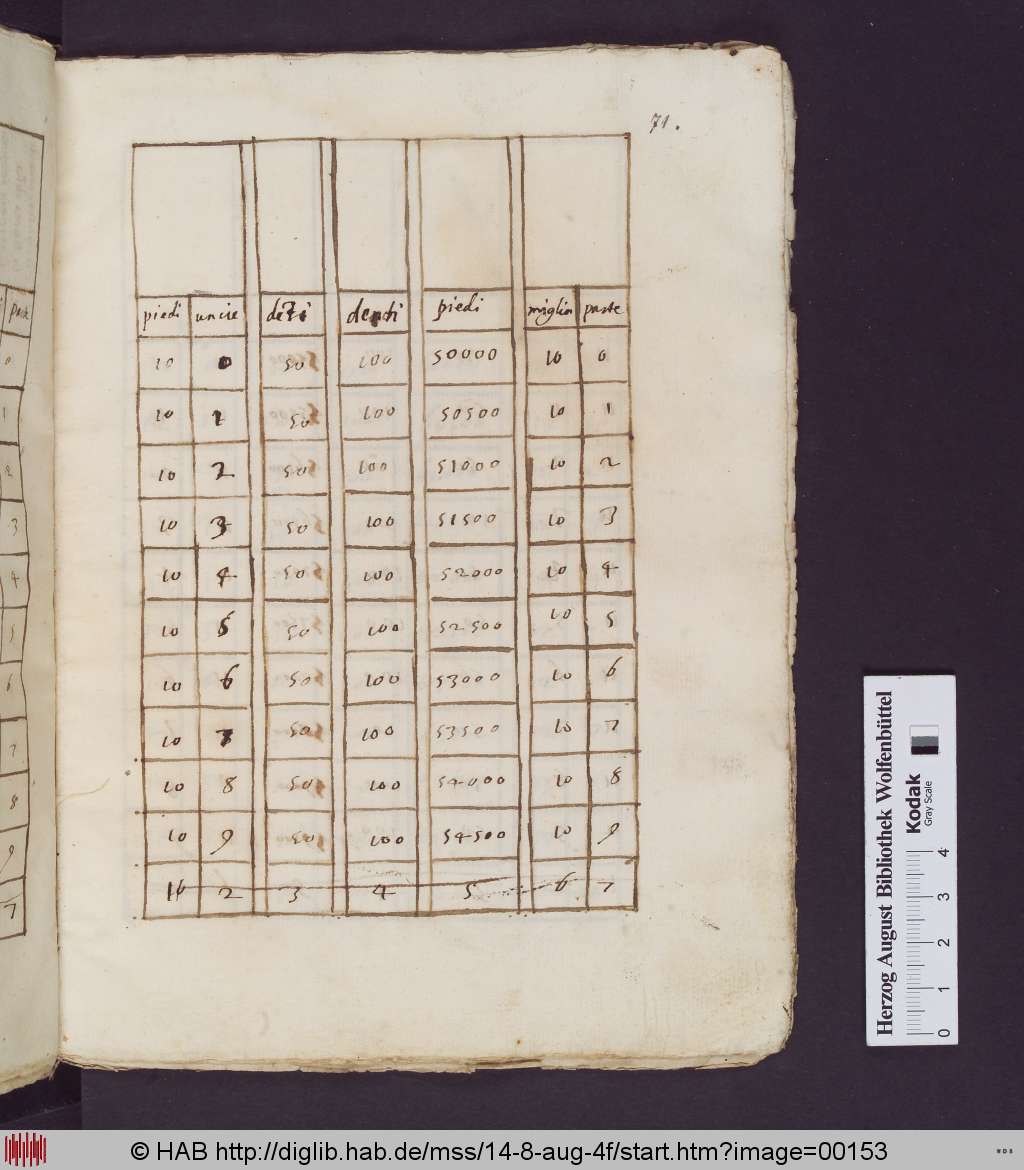 71.
piedi uncie deti denti piedi miglia parte
10 0 50 100 50000 10 0
10 1 50 100 50500 10 1
10 2 50 100 51000 10 2
10 3 50 100 51500 10 3
10 4 50 100 52000 10 4
10 5 50 100 52500 10 5
10 6 50 100 53000 10 6
10 7 50 100 53500 10 7
10 8 50 100 54000 10 8
10 9 50 100 54500 10 9
2 3 4 5 6 7
parte
0
1
2
3
4
5
6
7
8
9
7
Herzog August Bibliothek Wolfenbüttel
Kodak
Gray Scale
0 1 2 3 4
© HAB http://diglib.hab.de/mss/14-8-aug-4f/start.htm?image=00153